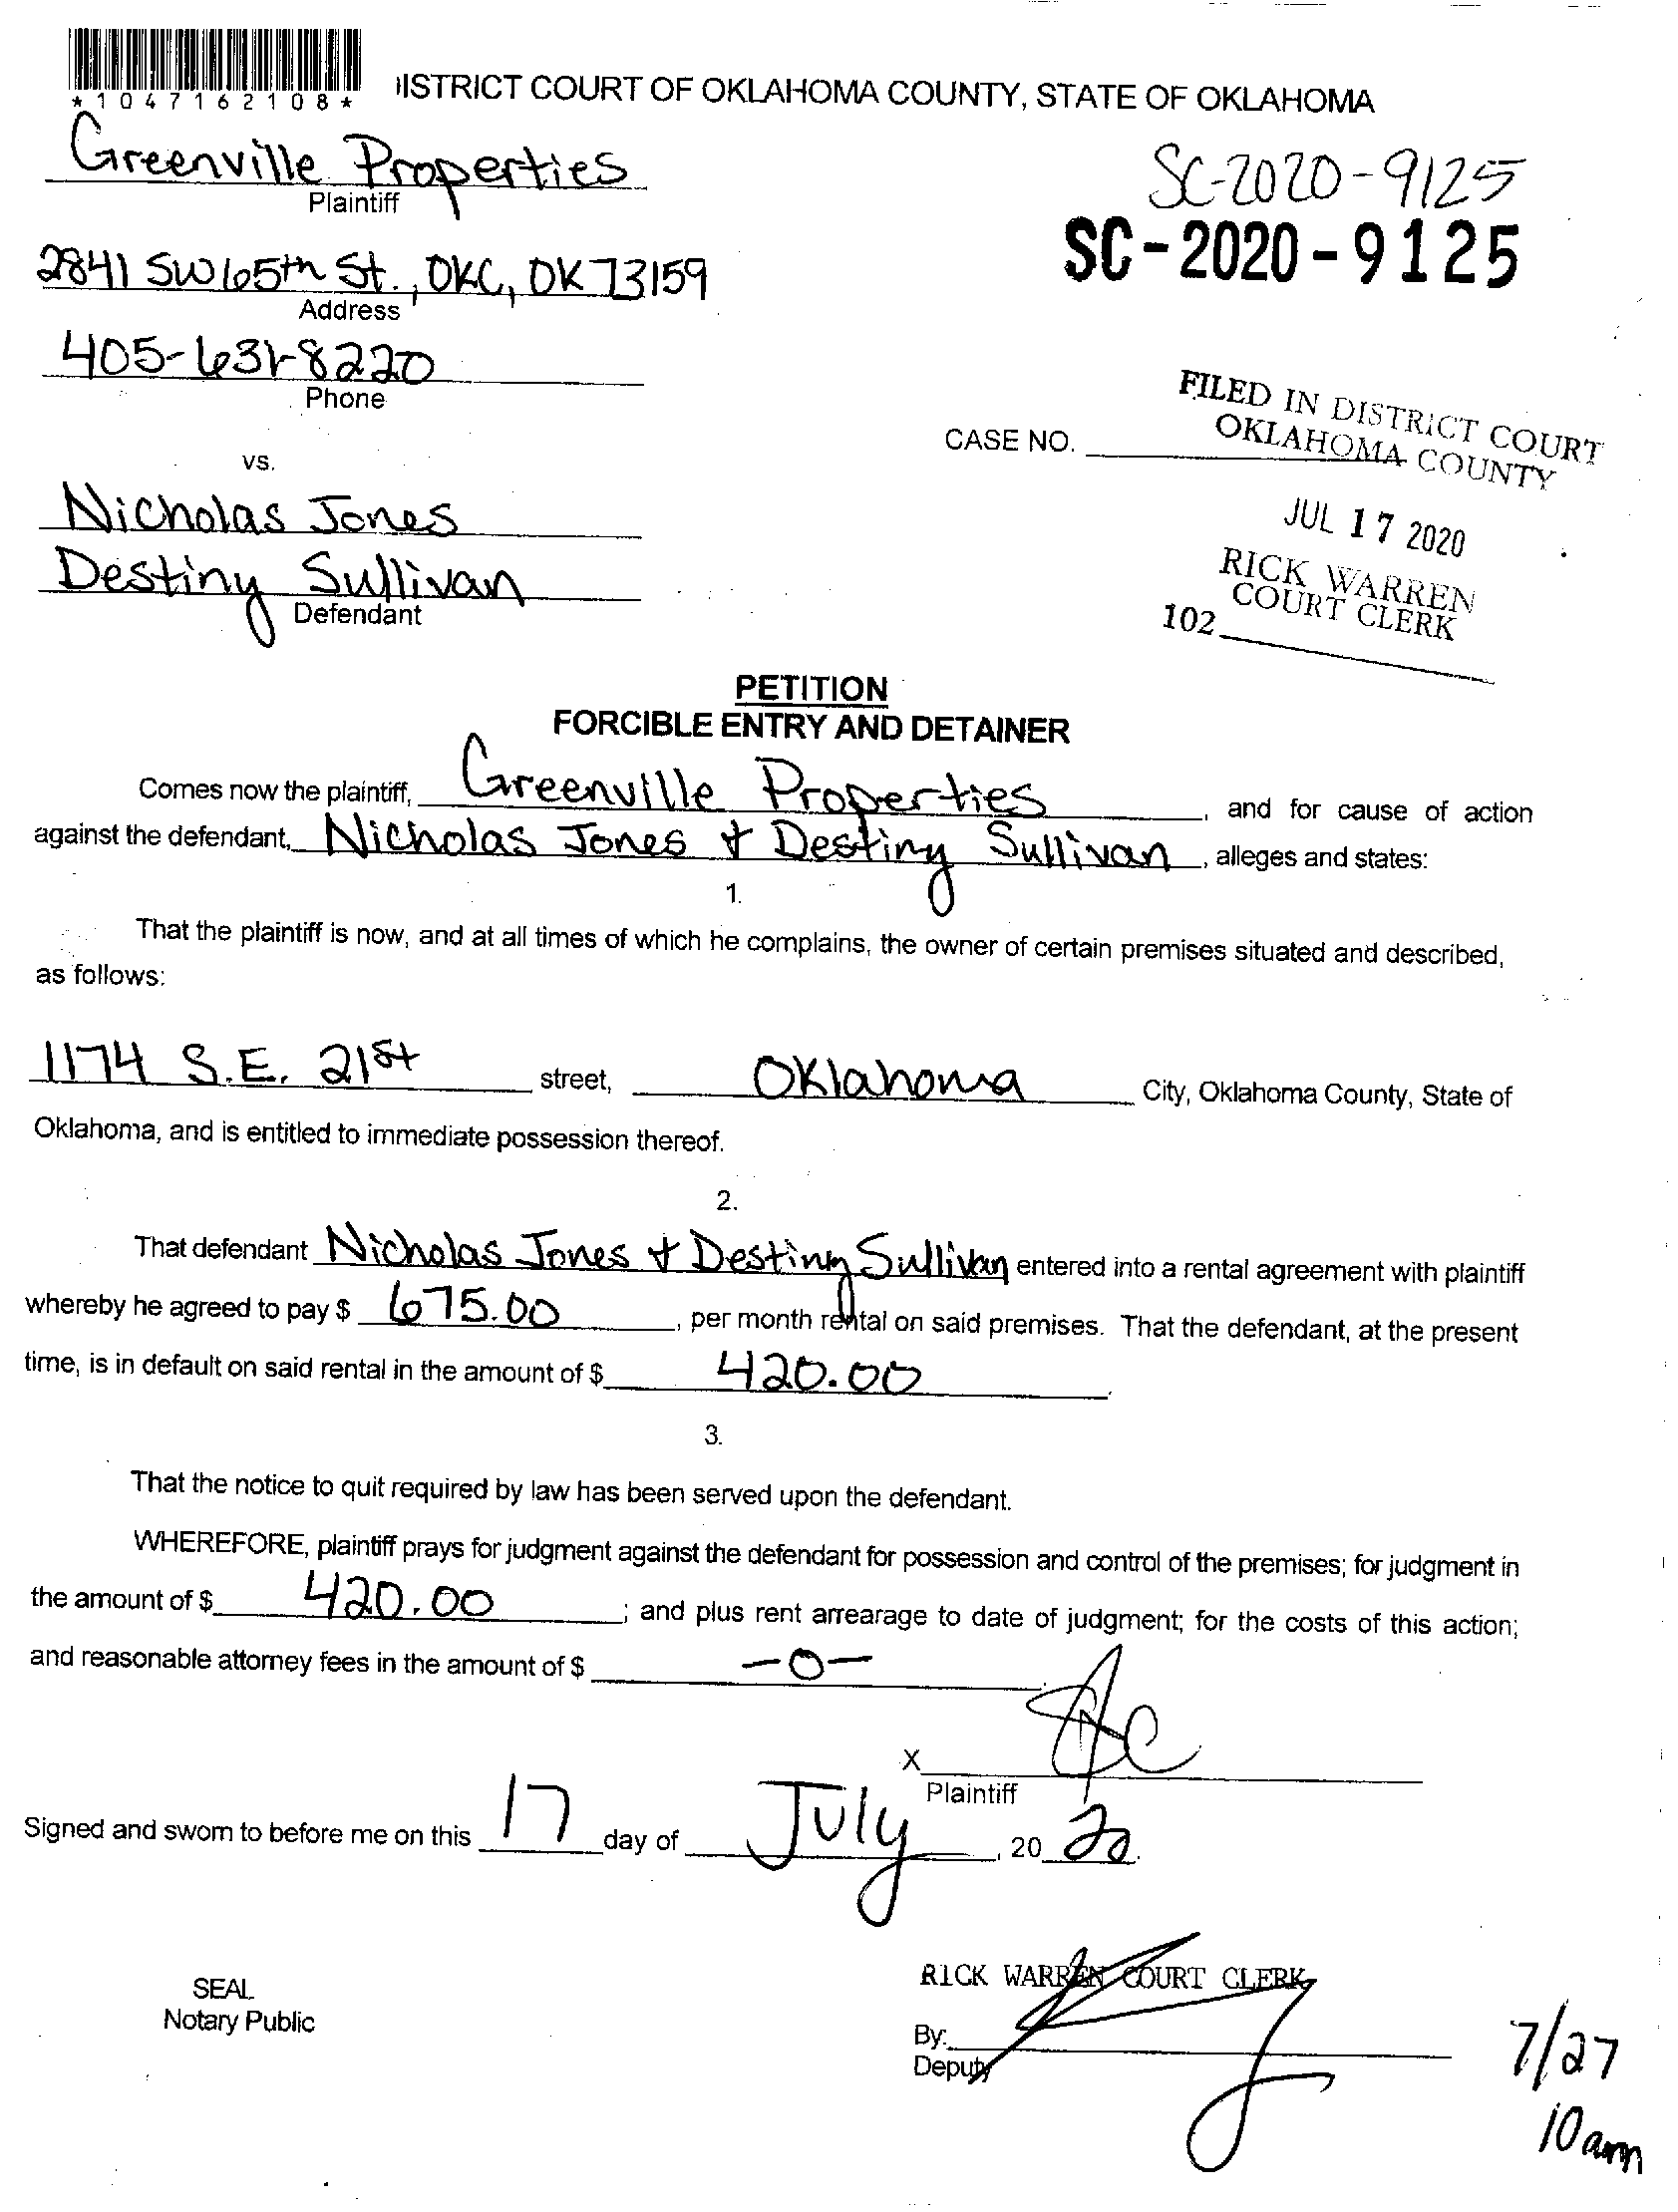 *1047162108*
ISTRICT COURT OF OKLAHOMA COUNTY, STATE OF OKLAHOMA
Greenville Properties
Plaintiff
SC-2020-9125
SC-2020-9125
2841 SW 65th St., OKC, OK 73159
Address
405-631-8220
Phone
FILED IN DISTRICT COURT
OKLAHOMA COUNTY
CASE NO.
vs.
JUL 17 2020
Nicholas Jones
RICK WARREN
COURT CLERK
Destiny Sullivan
Defendant
102
PETITION
FORCIBLE ENTRY AND DETAINER
Comes now the plaintiff, Greenville Properties, and for cause of action
against the defendant, Nicholas Jones & Destiny Sullivan, alleges and states:
1.
That the plaintiff is now, and at all times of which he complains, the owner of certain premises situated and described,
as follows:
1174 S.E. 21st street, Oklahoma City, Oklahoma County, State of
Oklahoma, and is entitled to immediate possession thereof.
2.
That defendant Nicholas Jones & Destiny Sullivan entered into a rental agreement with plaintiff
whereby he agreed to pay $ 675.00, per month rental on said premises. That the defendant, at the present
time, is in default on said rental in the amount of $ 420.00.
3.
That the notice to quit required by law has been served upon the defendant.
WHEREFORE, plaintiff prays for judgment against the defendant for possession and control of the premises; for judgment in
the amount of $ 420.00; and plus rent arrearage to date of judgment; for the costs of this action;
and reasonable attorney fees in the amount of $ -0-.
X
Plaintiff
Signed and sworn to before me on this 17 day of July, 20 20.
RICK WARREN COURT CLERK
SEAL
Notary Public
By:
Deputy
7/27
10 am